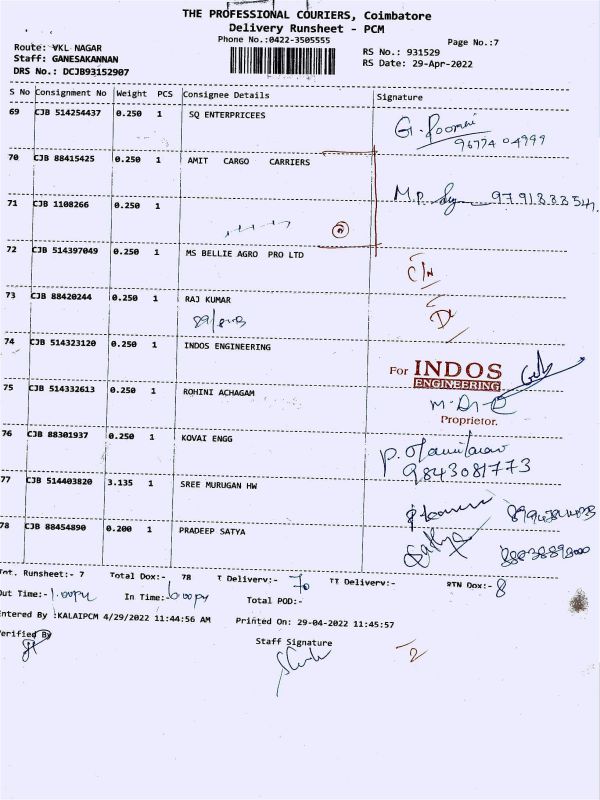 THE PROFESSIONAL COURIERS, Coimbatore
Delivery Runsheet - PCM
Phone No.:0422-3505555
Page No.:7
Route: VKL NAGAR
RS No.: 931529
Staff: GANESAKANNAN
RS Date: 29-Apr-2022
DRS No.: DCJB93152907
S No Consignment No Weight PCS Consignee Details Signature
69 CJB 514254437 0.250 1 SQ ENTERPRICEES
70 CJB 88415425 0.250 1 AMIT CARGO CARRIERS
71 CJB 1108266 0.250 1
72 CJB 514397049 0.250 1 MS BELLIE AGRO PRO LTD
C/N
73 CJB 88420244 0.250 1 RAJ KUMAR
DL
74 CJB 514323120 0.250 1 INDOS ENGINEERING
For INDOS
ENGINEERING
Proprietor.
75 CJB 514332613 0.250 1 ROHINI ACHAGAM
76 CJB 88301937 0.250 1 KOVAI ENGG
9843081773
77 CJB 514403820 3.135 1 SREE MURUGAN HW
78 CJB 88454890 0.200 1 PRADEEP SATYA
Sathya
Tot. Runsheet:- 7 Total Dox:- 78 T Delivery:- 70 TT Delivery:- RTN Dox:- 8
Out Time:- 1.00PM In Time:- 6.00PM Total POD:-
Entered By :KALAIPCM 4/29/2022 11:44:56 AM Printed On: 29-04-2022 11:45:57
Verified By
Staff Signature
2